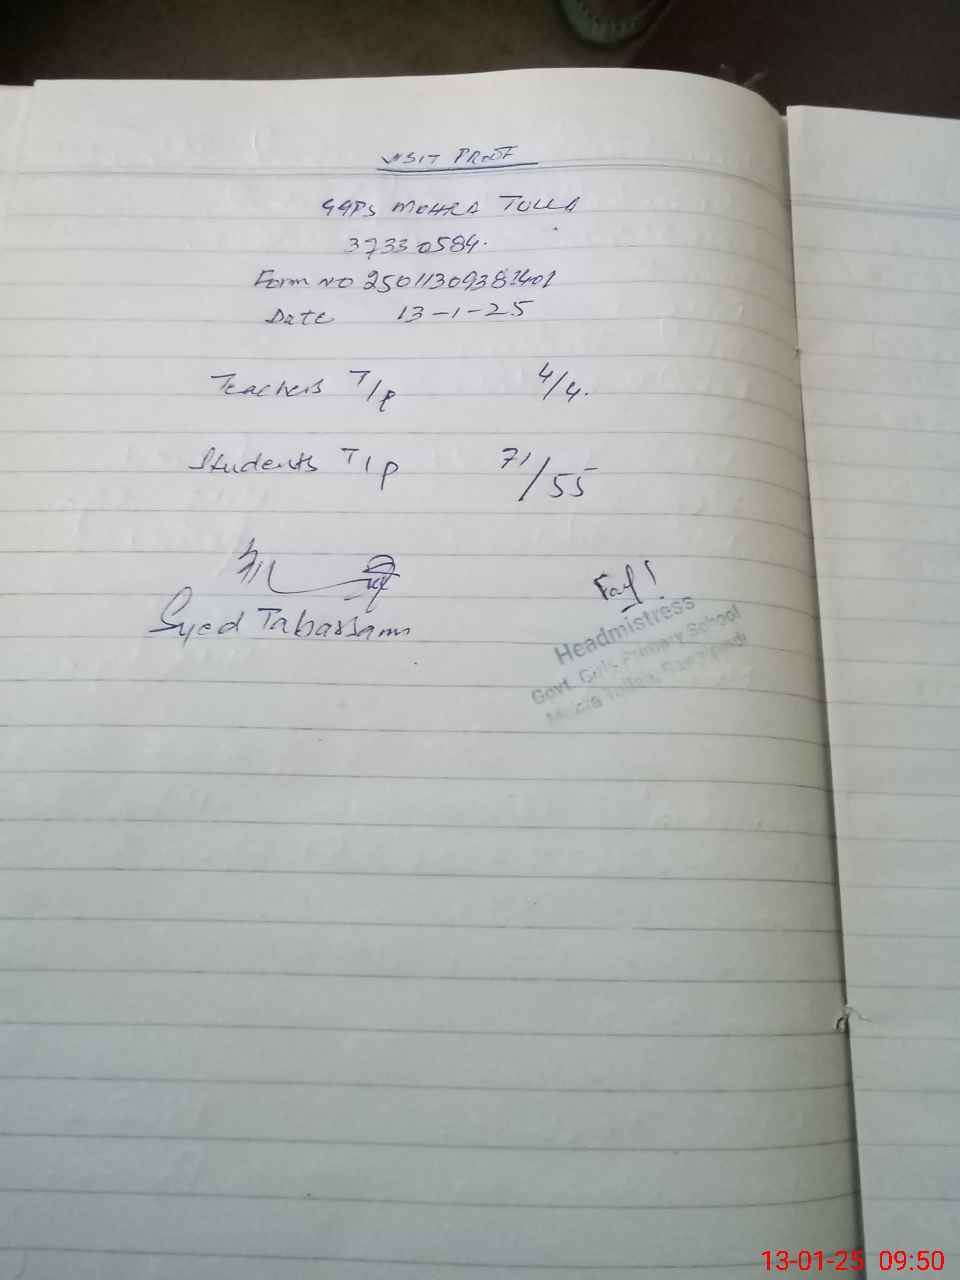 VISIT PROOF
GGPS MOHRA TULLA
37330584.
Form no 25011309382401
Date 13-1-25
Teachers T/P 4/4.
Students T/P 71/55
Syed Tabassam
Headmistress
Govt. Girls Primary School
Rawalpindi
13-01-25 09:50